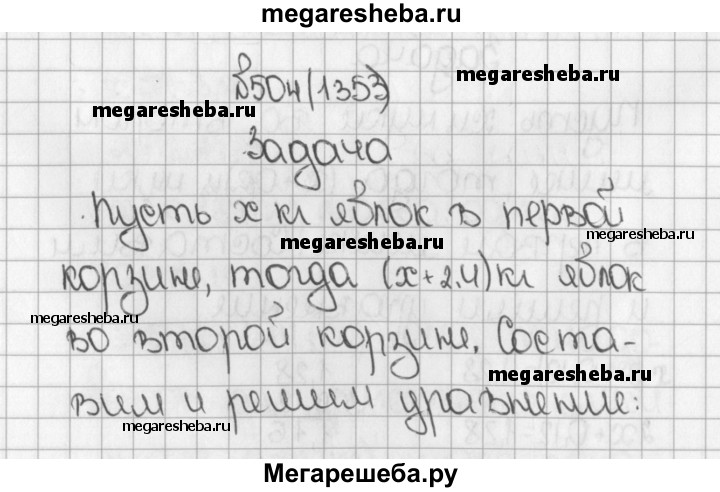 megaresheba.ru
№504(1353)
megaresheba.ru
megaresheba.ru
Задача
Пусть x кг яблок в первой
megaresheba.ru
megaresheba.ru
корзине, тогда (x+2,4)кг яблок
megaresheba.ru
во второй корзине. Соста-
megaresheba.ru
вим и решим уравнение:
megaresheba.ru
Мегарешеба.ру